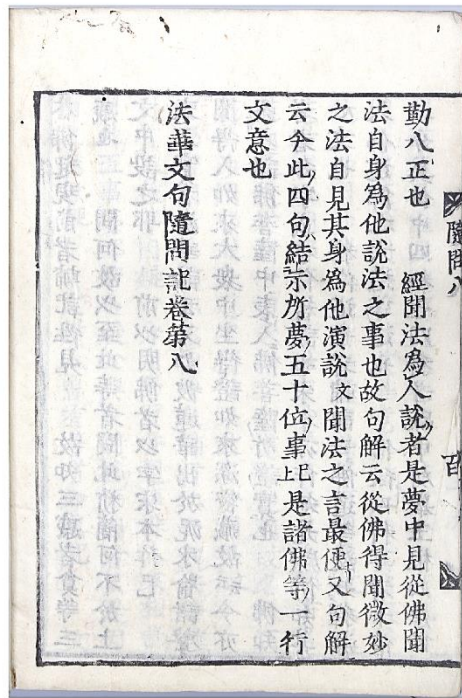 勤八正也　經聞法為人說者是夢中見從佛聞
法自身為他說法之事也故句解云從佛得聞微妙
之法自見其身為他演說文聞法之言最便又句解
云今此四句結示所夢五十位事已上是諸佛等一行
文意也
法華文句隨問記卷第八
隨問八
百